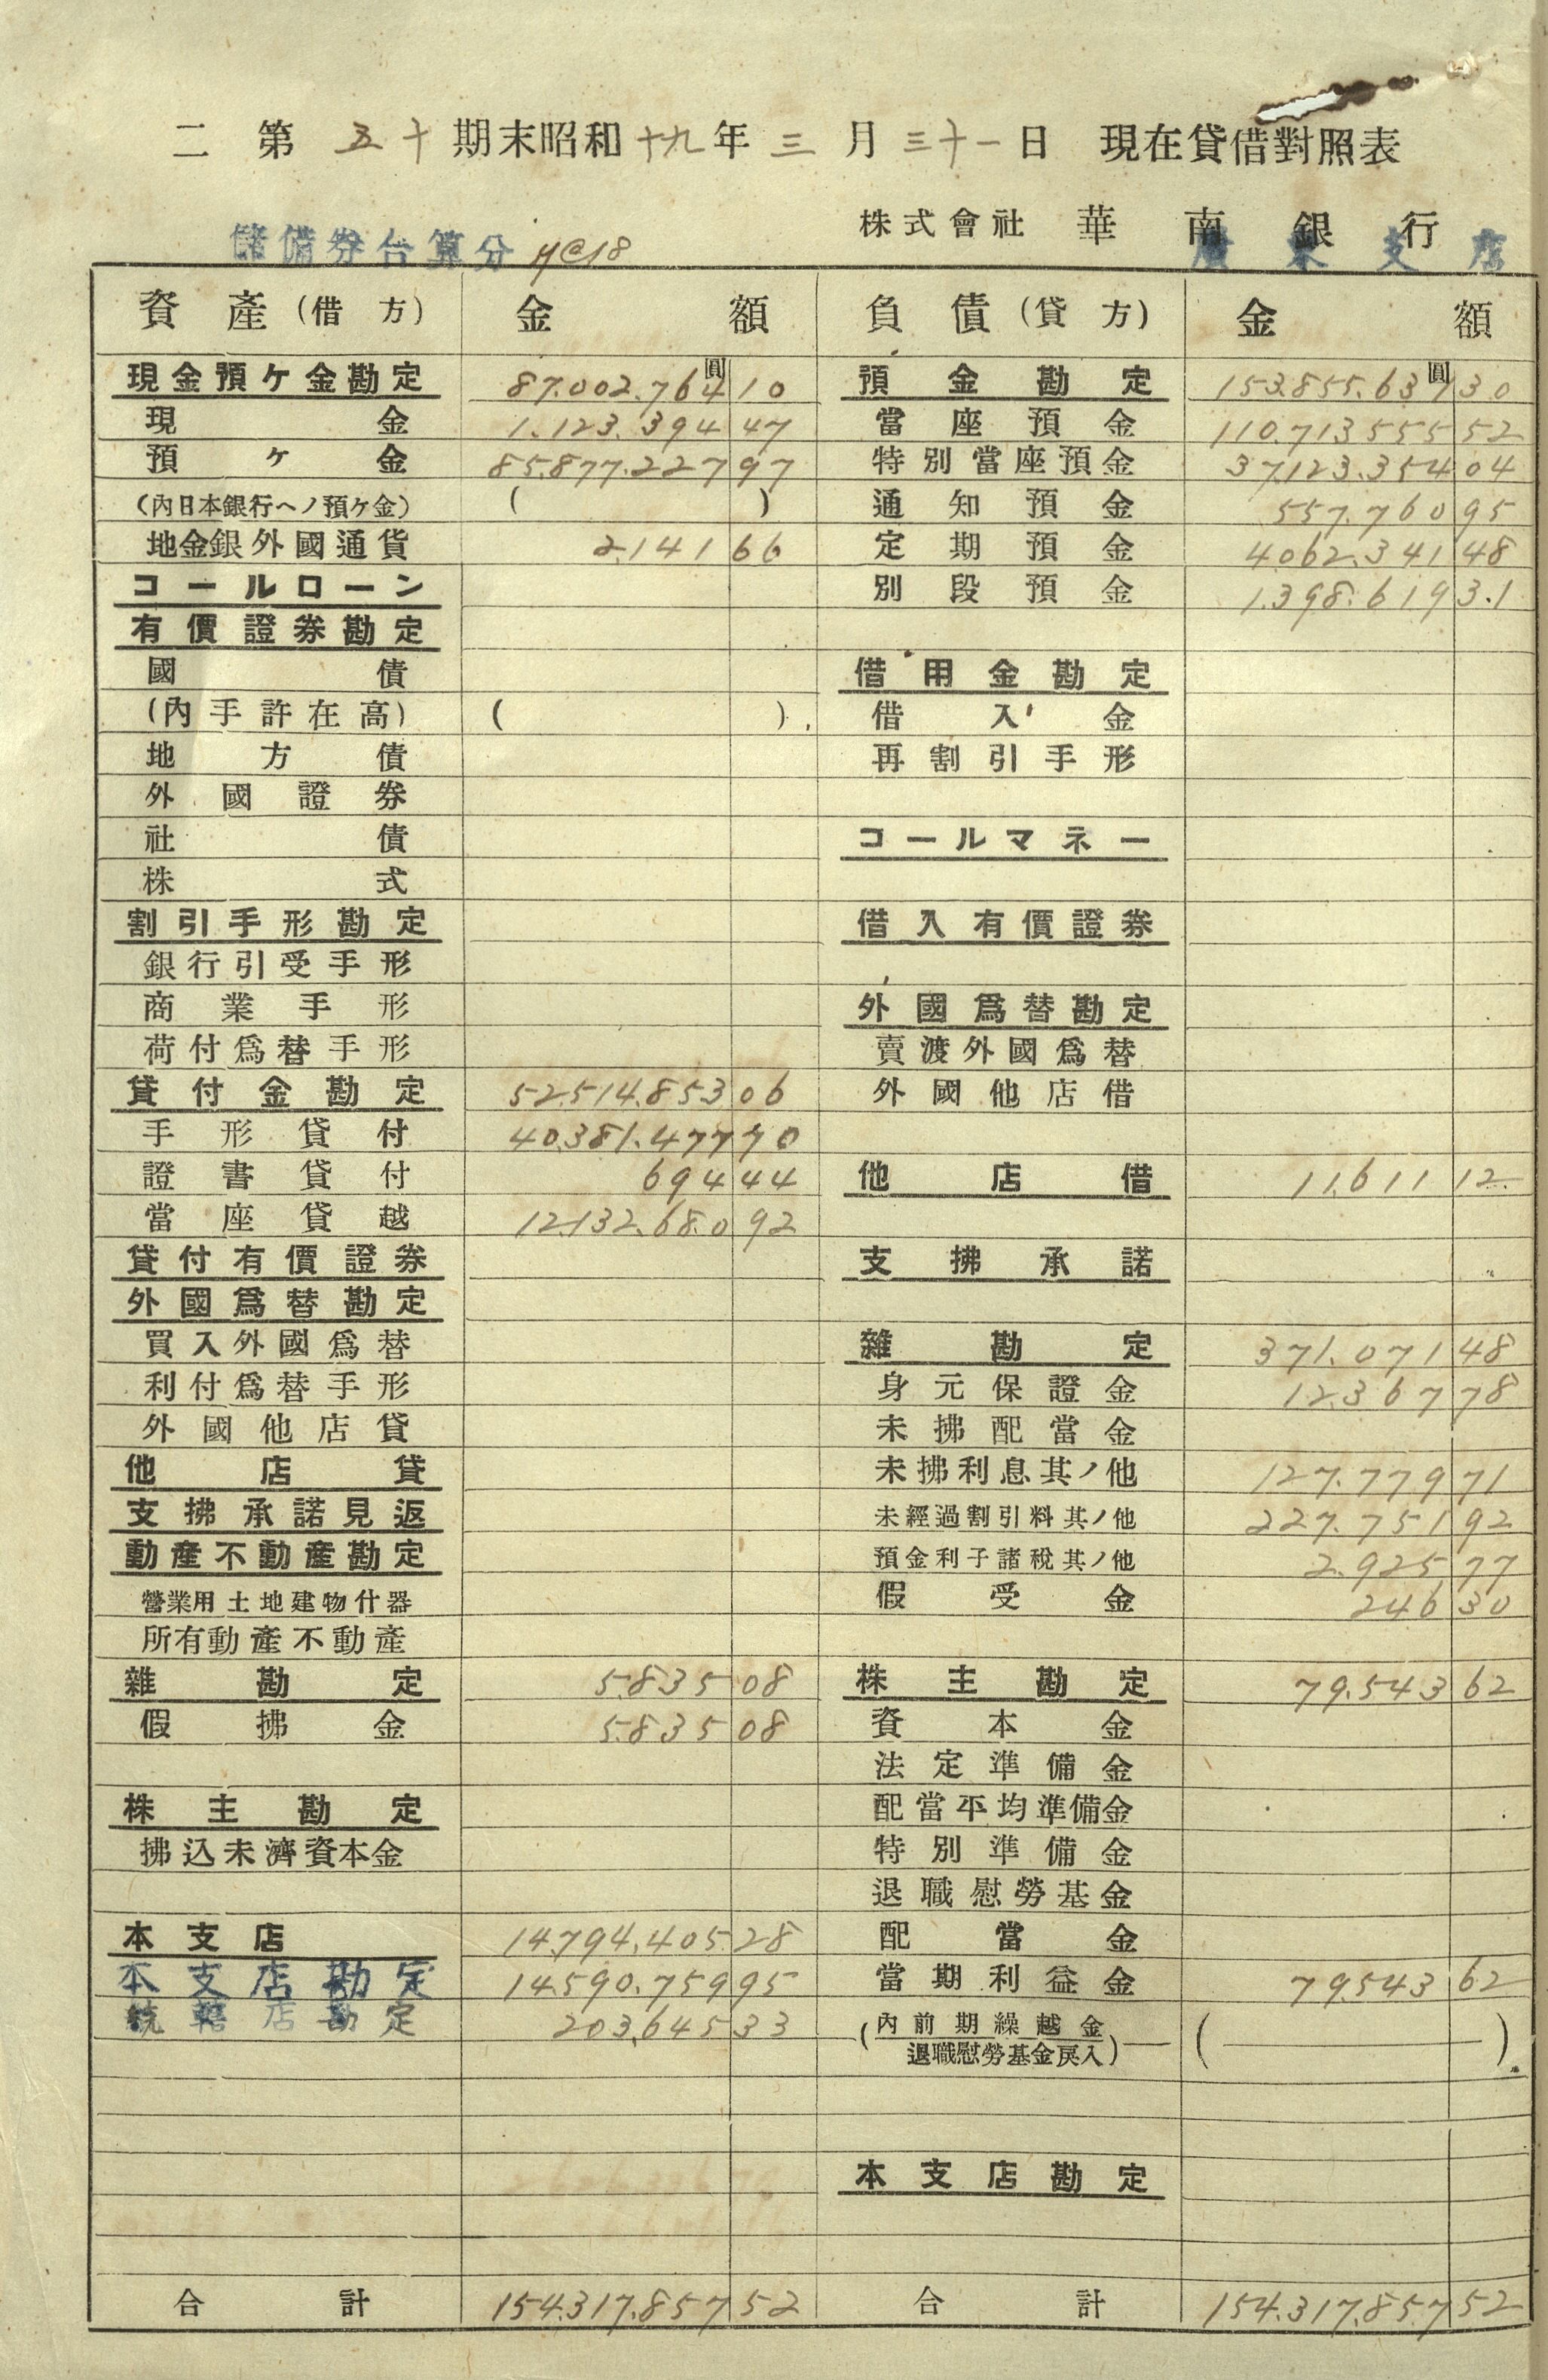 二 第 五十 期末昭和十九年三月三十一日 現在貸借對照表
株式會社 華南銀行
廣東支店
儲備券合算分 @18
資產(借方) 金額
現金預ヶ金勘定 87.002.764 圓 10
現金 1.123.394 47
預ヶ金 85.877.227 97
(內日本銀行ヘノ預ヶ金) ( )
地金銀外國通貨 2.141 66
コールローン
有價證券勘定
國債
(內手許在高) ( )
地方債
外國證券
社債
株式
割引手形勘定
銀行引受手形
商業手形
荷付爲替手形
貸付金勘定 52.514.853 06
手形貸付 40.381.477 70
證書貸付 694 44
當座貸越 12.132.680 92
貸付有價證券
外國爲替勘定
買入外國爲替
利付爲替手形
外國他店貸
他店貸
支拂承諾見返
動產不動產勘定
營業用土地建物什器
所有動產不動產
雜勘定 5.835 08
假拂金 5.835 08
株主勘定
拂込未濟資本金
本支店 14.794.405 28
本支店勘定 14.590.759 95
統轄店勘定 203.645 33
合計 154.317.857 52
負債(貸方) 金額
預金勘定 153.855.637 圓 30
當座預金 110.713.555 52
特別當座預金 37.123.354 04
通知預金 557.760 95
定期預金 4.062.341 48
別段預金 1.398.619 31
借用金勘定
借入金
再割引手形
コールマネー
借入有價證券
外國爲替勘定
賣渡外國爲替
外國他店借
他店借 11.611 12
支拂承諾
雜勘定 371.071 48
身元保證金 12.367 78
未拂配當金
未拂利息其ノ他 127.779 71
未經過割引料其ノ他 227.751 92
預金利子諸稅其ノ他 2.925 77
假受金 246 30
株主勘定 79.543 62
資本金
法定準備金
配當平均準備金
特別準備金
退職慰勞基金
配當金
當期利益金 79.543 62
(內前期繰越金
退職慰勞基金戾入) ( )
本支店勘定
合計 154.317.857 52